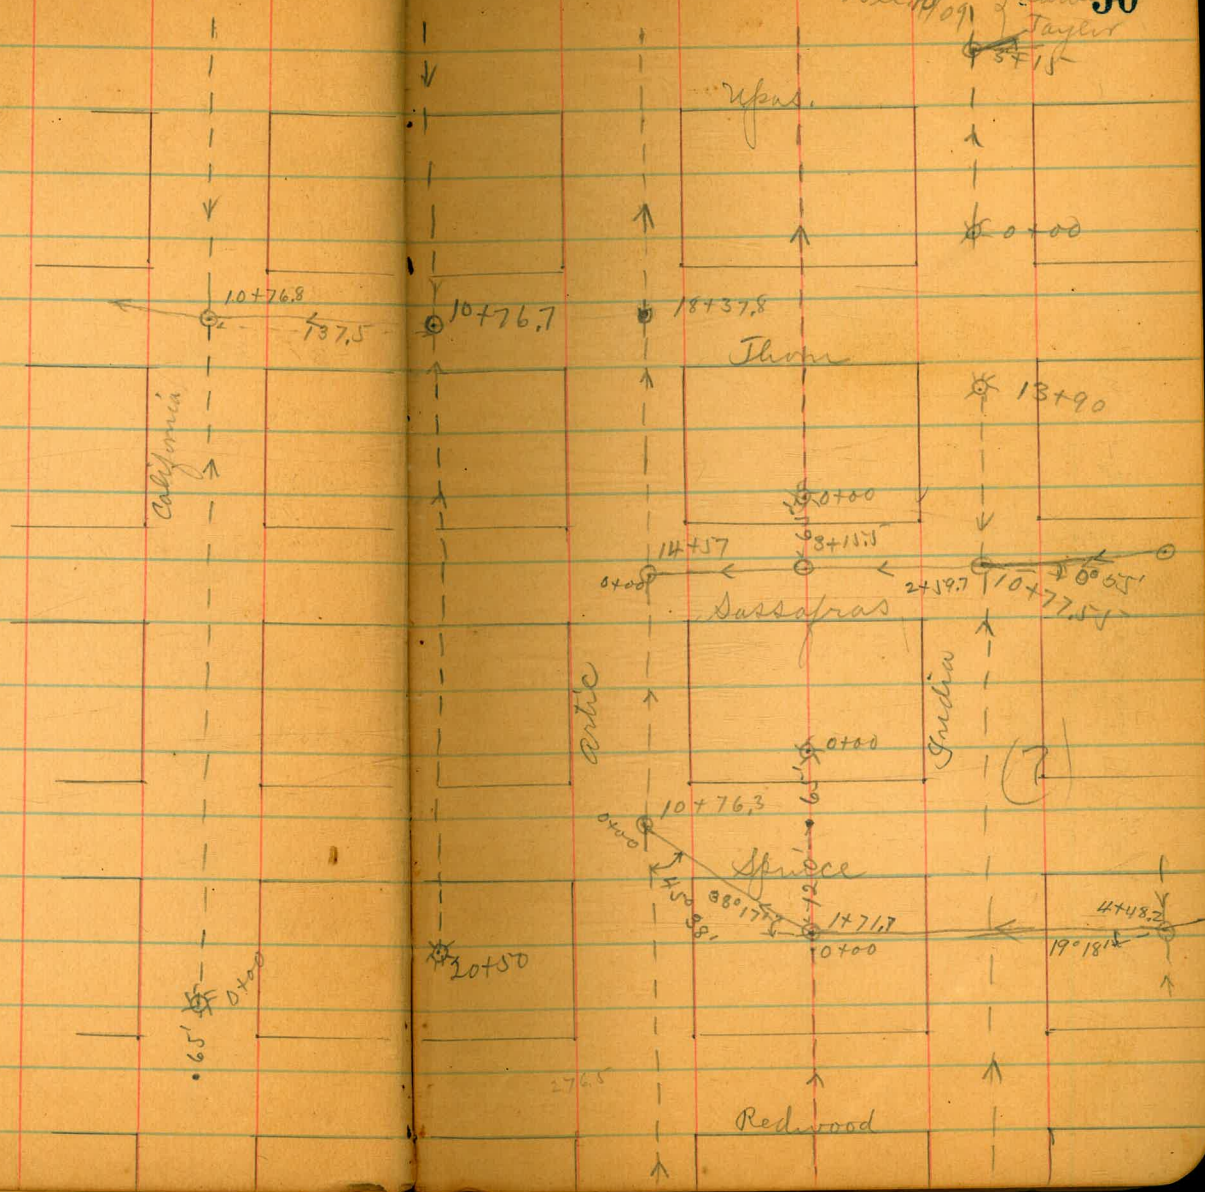 50
Taylor
3+15
Upas.
0+00
10+76.8
137.5
10+76.7
18+37.8
Thorn
13+90
California
0+00
65'
14+57
3+15.5
0+00
2+59.7
10+77.55
0°55'
Sassafras
Artic
India
0+00
(7)
65'
10+76.3
0+00
Spruce
120'
45°
38°17'
1+71.7
0+00
4+48.2
19°18'
20+50
0+00
65'
276.5
Redwood